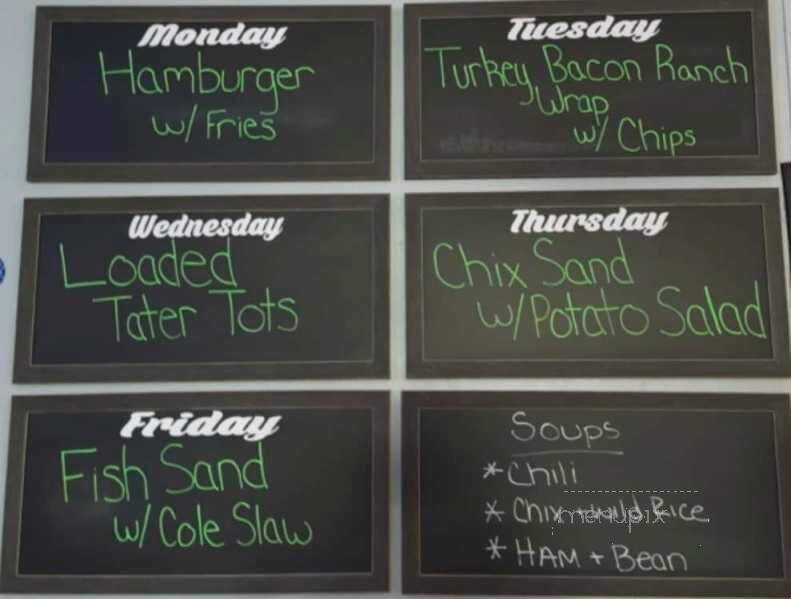 Monday
Hamburger
w/ Fries
Tuesday
Turkey Bacon Ranch
Wrap
w/ Chips
Wednesday
Loaded
Tater Tots
Thursday
Chix Sand
w/ Potato Salad
Friday
Fish Sand
w/ Cole Slaw
Soups
* Chili
* Chix + Wild Rice
menupix
* HAM + Bean